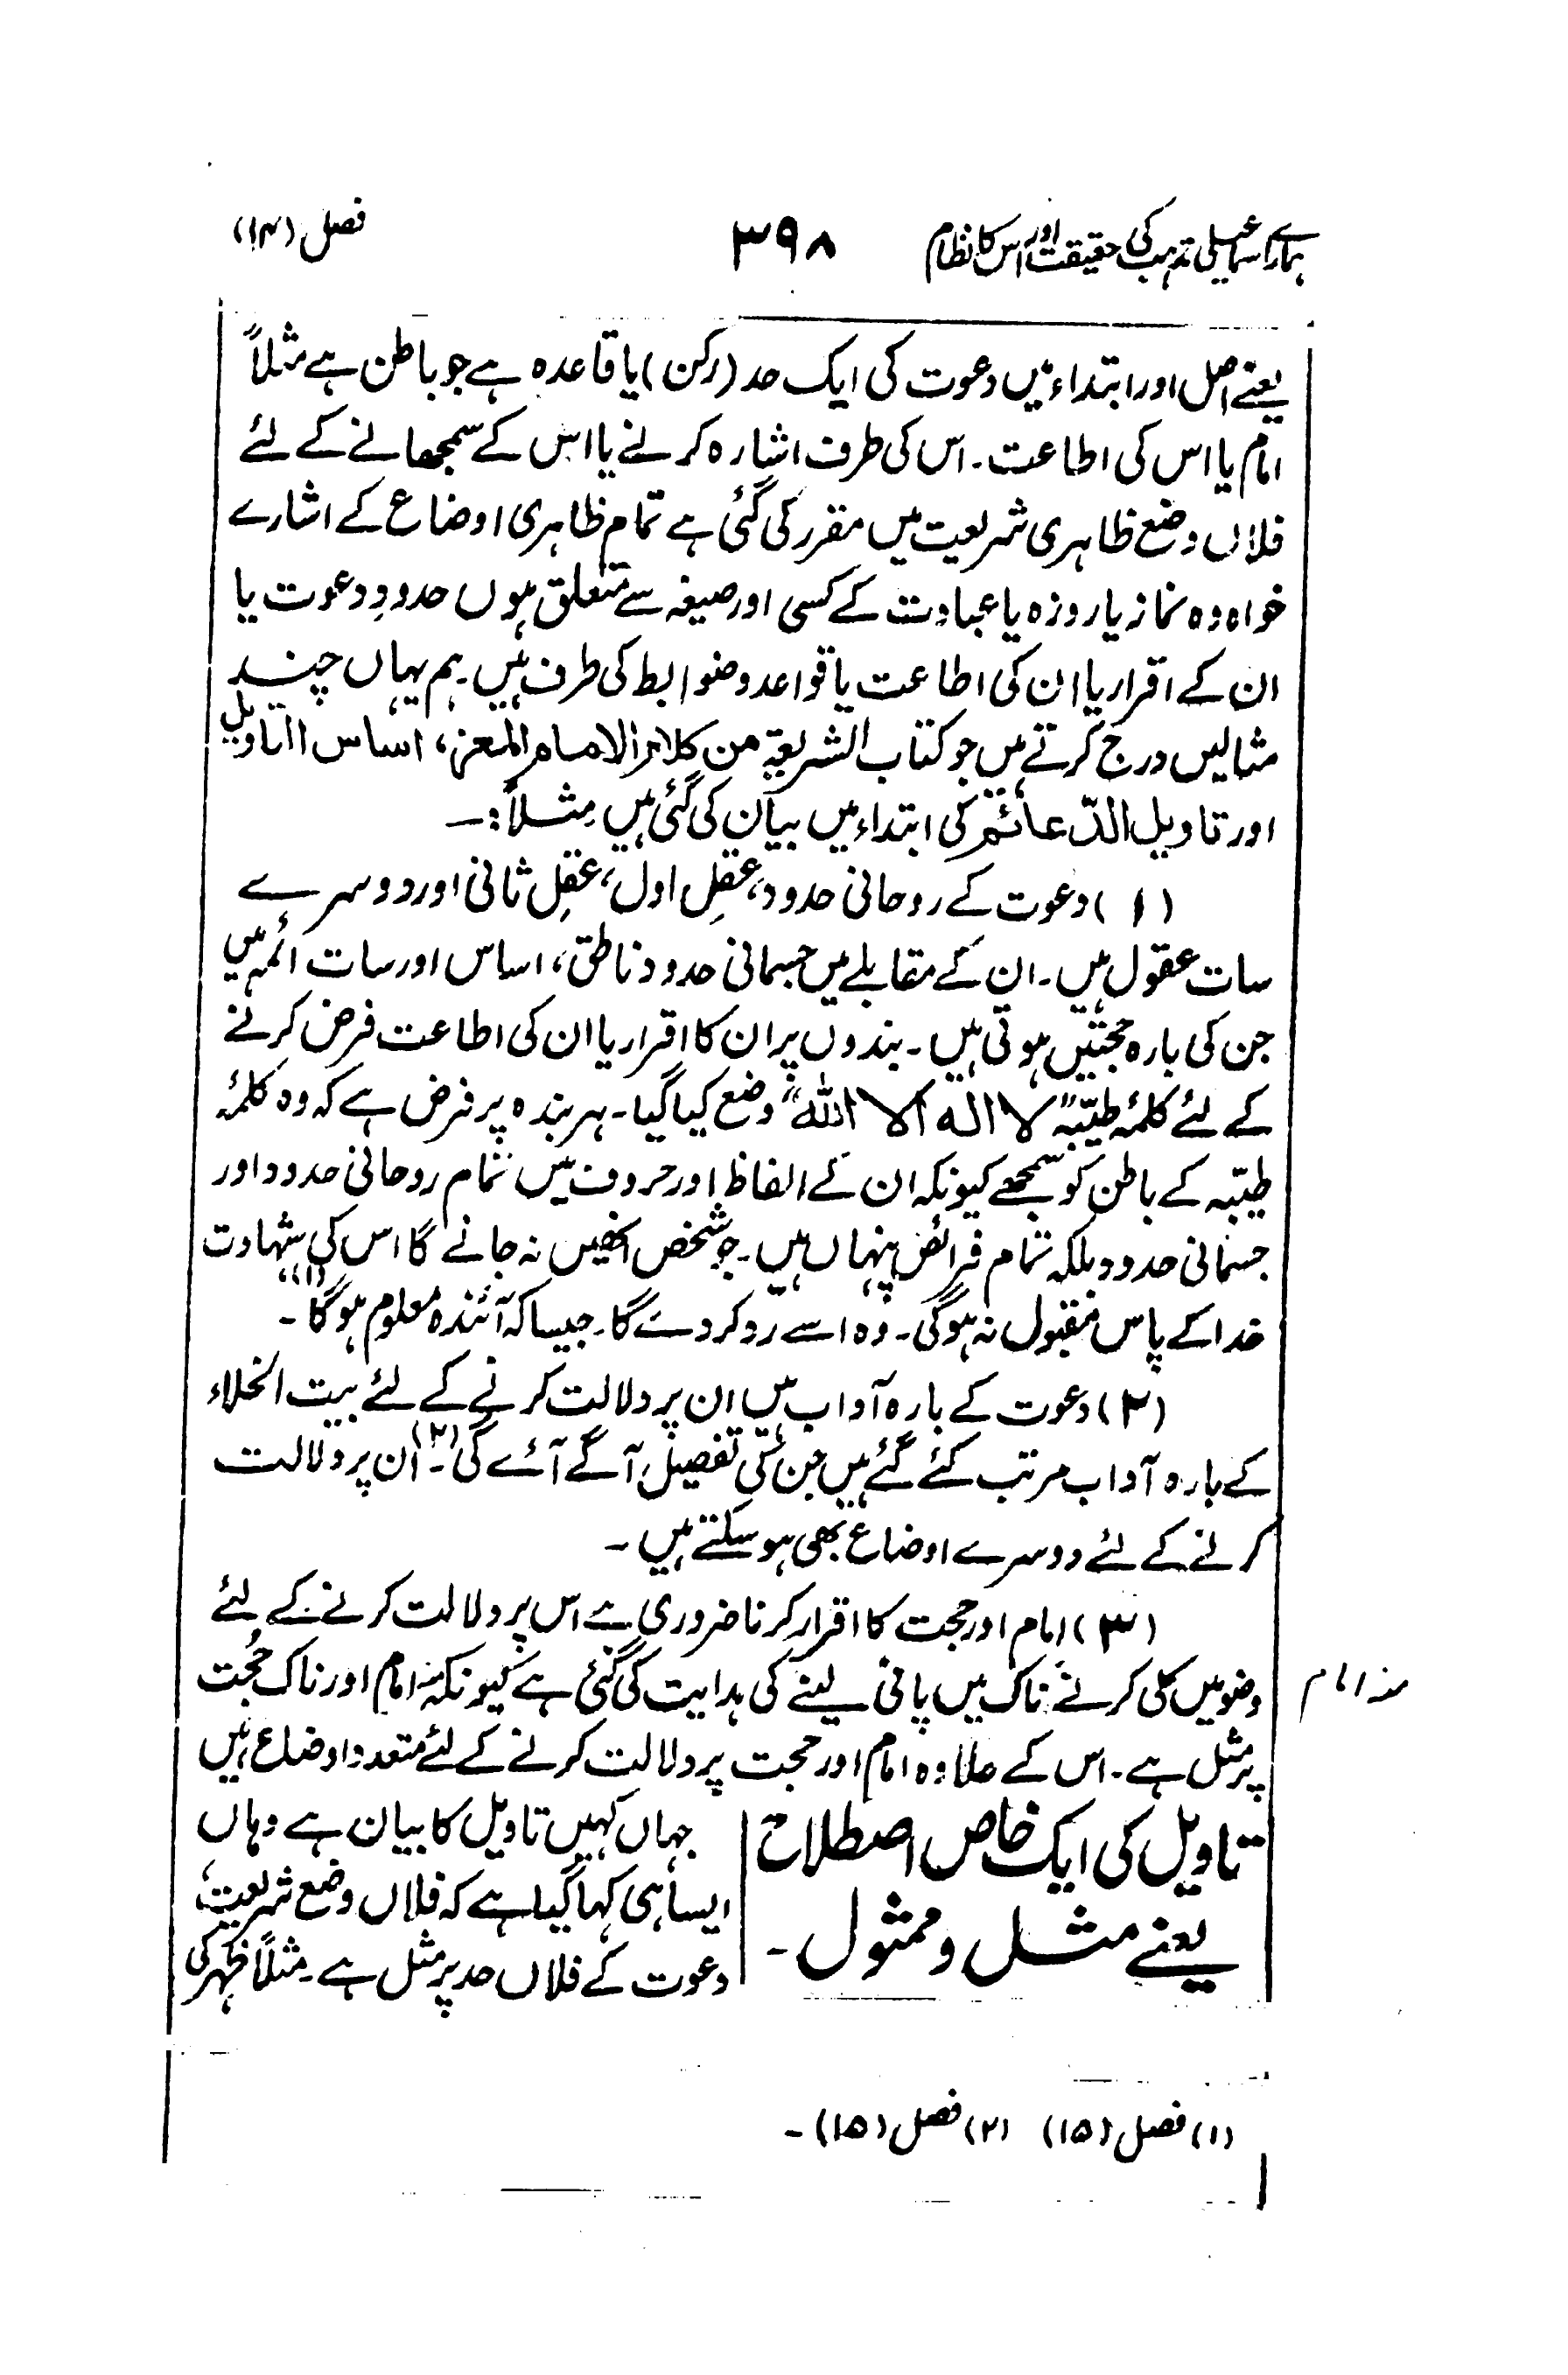 ہمارے اسماعیلی مذہب کی حقیقت اور اس کا نظام ۳۹۸ فصل (۱۴)
یعنے اصل اور ابتداء میں دعوت کی ایک حد (رکن) یا قاعدہ ہے جو باطن ہے مثلاً
امام یا اس کی اطاعت۔ اس کی طرف اشارہ کرنے یا اس کے سمجھانے کے لئے
فلاں وضع ظاہری شریعت میں مقرر کی گئی ہے تمام ظاہری اوضاع کے اشارے
خواہ وہ نماز یا روزہ یا عبادت کے کسی اور صیغہ سے متعلق ہوں حدودِ دعوت یا
ان کے اقرار یا ان کی اطاعت یا قواعد و ضوابط کی طرف ہیں۔ ہم یہاں چند
مثالیں درج کرتے ہیں جو کتاب الشریعۃ من کلام الامام المعز، اساس التاویل
اور تاویل الدّعائم کی ابتداء میں بیان کی گئی ہیں مثلاً:۔
(۱) دعوت کے روحانی حدود، عقلِ اول، عقلِ ثانی اور دوسرے
سات عقول ہیں۔ ان کے مقابلے میں جسمانی حدود ناطق، اساس اور سات ائمہ ہیں
جن کی بارہ حجتیں ہوتی ہیں۔ بندوں پر ان کا اقرار یا ان کی اطاعت فرض کرنے
کے لئے کلمۂ طیّبہ "لا الہ الا اللہ" وضع کیا گیا۔ ہر بندہ پر فرض ہے کہ وہ کلمۂ
طیّبہ کے باطن کو سمجھے کیونکہ ان کے الفاظ اور حروف میں تمام روحانی حدود اور
جسمانی حدود بلکہ تمام فرائض پنہاں ہیں۔ جو شخص انھیں نہ جانے گا اس کی شہادت
خدا کے پاس مقبول نہ ہوگی۔ وہ اسے رد کر دے گا۔ جیسا کہ آئندہ معلوم ہوگا (۱)۔
(۲) دعوت کے بارہ آداب ہیں ان پر دلالت کرنے کے لئے بیت الخلاء
کے بارہ آداب مرتب کئے گئے ہیں جن کی تفصیل آگے آئے گی۔(۲) ان پر دلالت
کرنے کے لئے دوسرے اوضاع بھی ہو سکتے ہیں۔
(۳) امام اور حجت کا اقرار کرنا ضروری ہے اس پر دلالت کرنے کے لئے
وضو میں کلی کرنے ناک میں پانی لینے کی ہدایت کی گئی ہے کیونکہ منہ امام اور ناک حُجت
منہ امام
پر مثل ہے۔ اس کے علاوہ امام اور حجت پر دلالت کرنے کے لئے متعدد اوضاع ہیں
تاویل کی ایک خاص اصطلاح
یعنے مثل و ممثول۔
جہاں کہیں تاویل کا بیان ہے وہاں
ایسا ہی کہا گیا ہے کہ فلاں وضع شریعت،
دعوت کے فلاں حد پر مثل ہے۔ مثلاً ظہر کی
(۱) فصل (۱۵) (۲) فصل (۱۵)۔